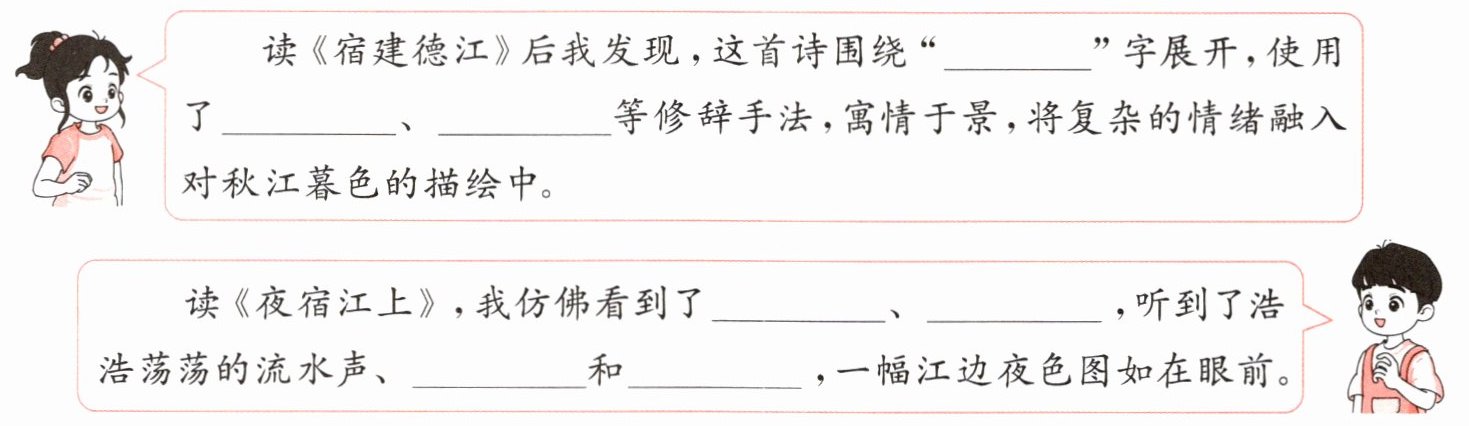 读《宿建德江》后我发现，这首诗围绕“________”字展开，使用
了__________、__________等修辞手法，寓情于景，将复杂的情绪融入
对秋江暮色的描绘中。
读《夜宿江上》，我仿佛看到了__________、__________，听到了浩
浩荡荡的流水声、__________和__________，一幅江边夜色图如在眼前。